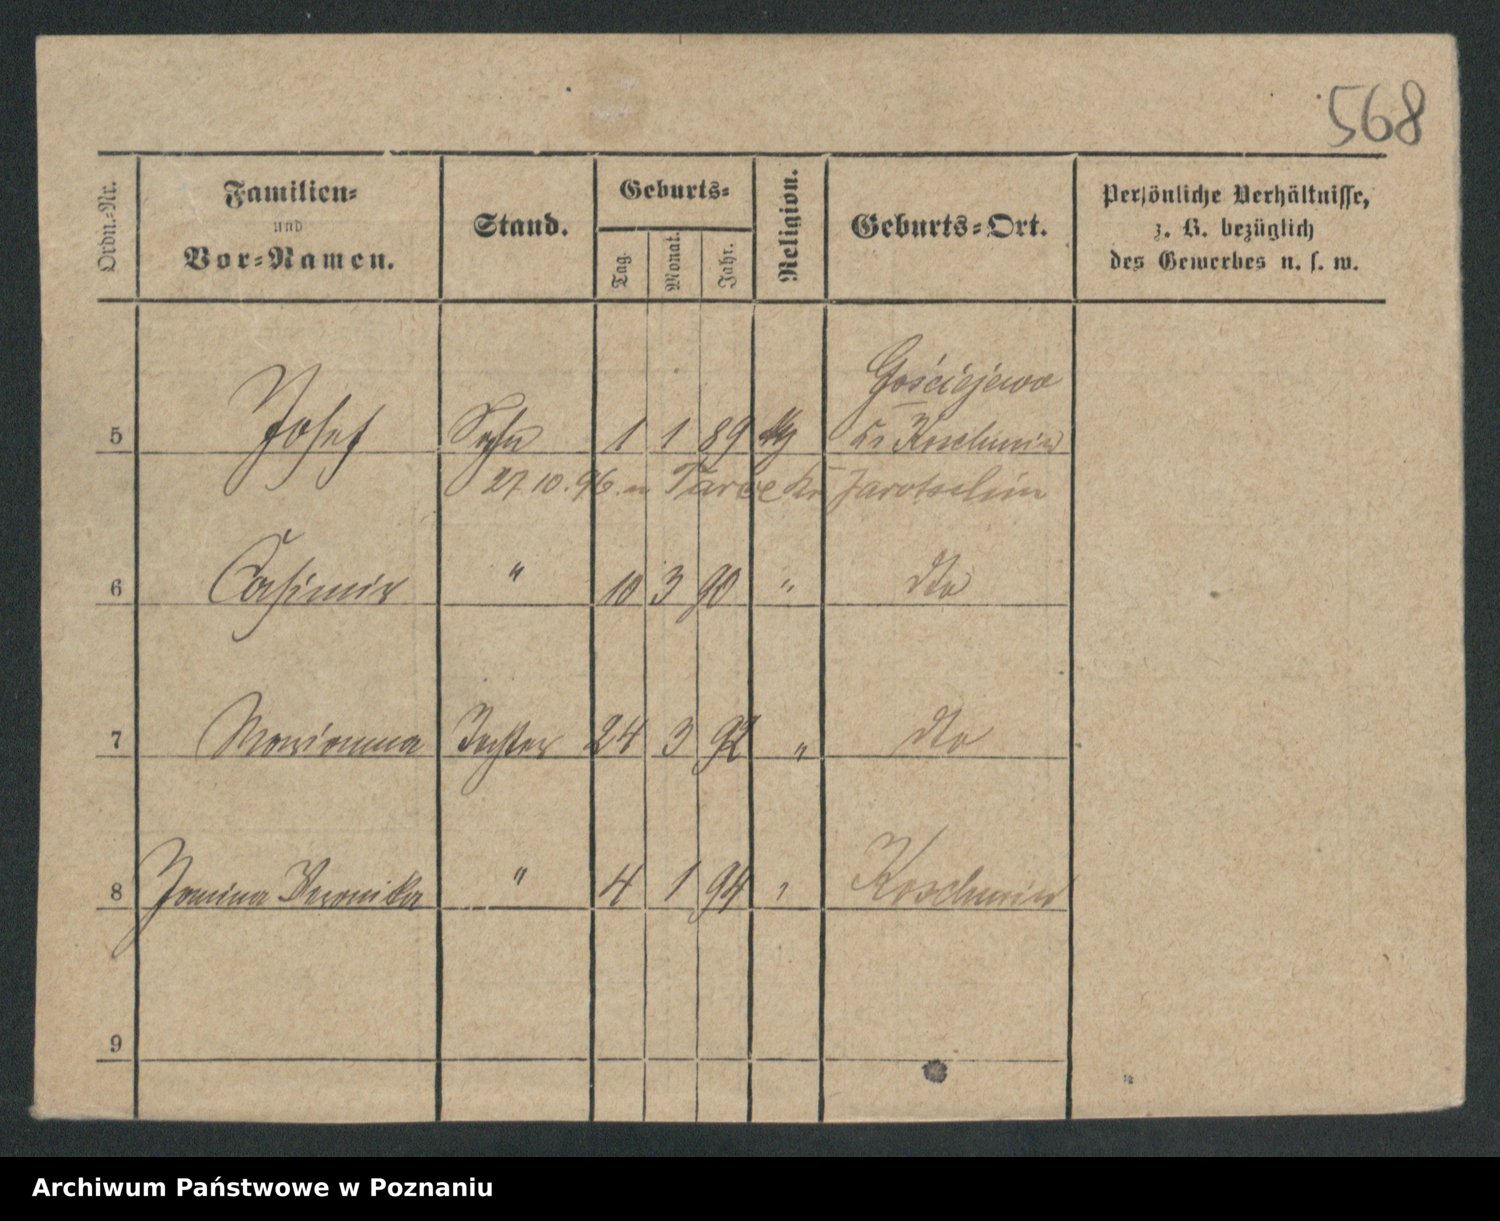 568
Ordn.-Nr.
Familien-
und
Vor-Namen.
Stand.
Geburts-
Tag.
Monat.
Jahr.
Religion.
Geburts-Ort.
Persönliche Verhältnisse,
z. B. bezüglich
des Gewerbes u. s. w.
Gościejewo
5 Josef Sohn 1 1 89 Kr Koschmin
27.10.96. Tarce Kr Jarotschin
6 Casimir " 10 3 90 " dto
7 Marianna Tochter 24 3 92 " dto
8 Janina Veronika " 4 1 94 " Koschmin
9
Archiwum Państwowe w Poznaniu